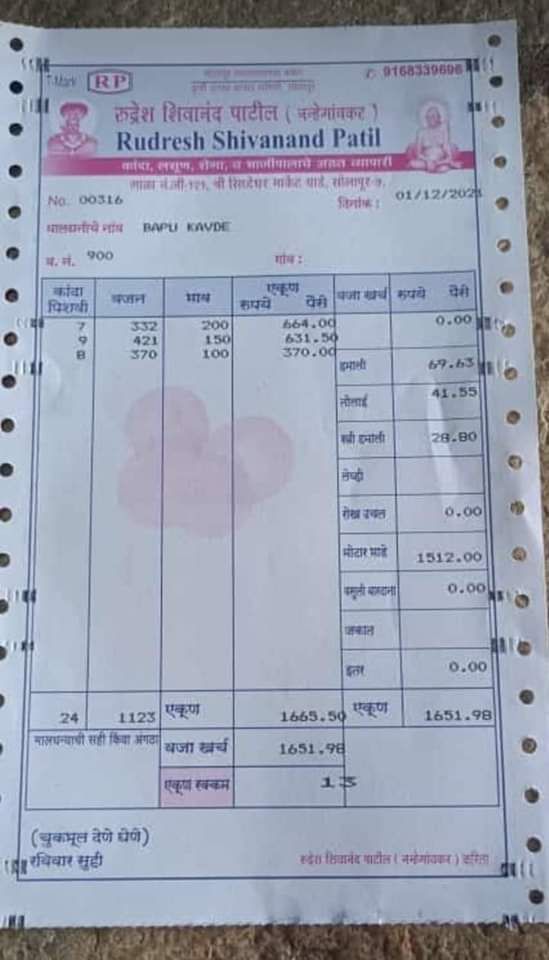 T-Mark RP
✆ 9168339696
रुद्रेश शिवानंद पाटील ( नन्हेगांवकर )
Rudresh Shivanand Patil
कांदा, लसूण, शेंगा, व भाजीपालाचे अडत व्यापारी
गाळा नं.जी-१२१, श्री सिध्देश्वर मार्केट यार्ड, सोलापूर-५.
No. 00316
दिनांक : 01/12/2021
मालधनीचे नांव BAPU KAVDE
ब. नं. 900
गांव :
कांदा पिशवी वजन भाव एकूण रुपये पैसे वजा खर्च रुपये पैसे
7 332 200 664.00 0.00
9 421 150 631.50
8 370 100 370.00
हमाली 69.63
तोलाई 41.55
स्त्री हमाली 28.80
लेव्ही
रोख उचल 0.00
मोटार भाडे 1512.00
वसुली बारदाना 0.00
जकात
इतर 0.00
24 1123 एकूण 1665.50 एकूण 1651.98
मालधन्याची सही किंवा अंगठा वजा खर्च 1651.98
एकूण रक्कम 13
(चुकभूल देणे घेणे)
रविवार सुट्टी
रुद्रेश शिवानंद पाटील ( नन्हेगांवकर ) करिता